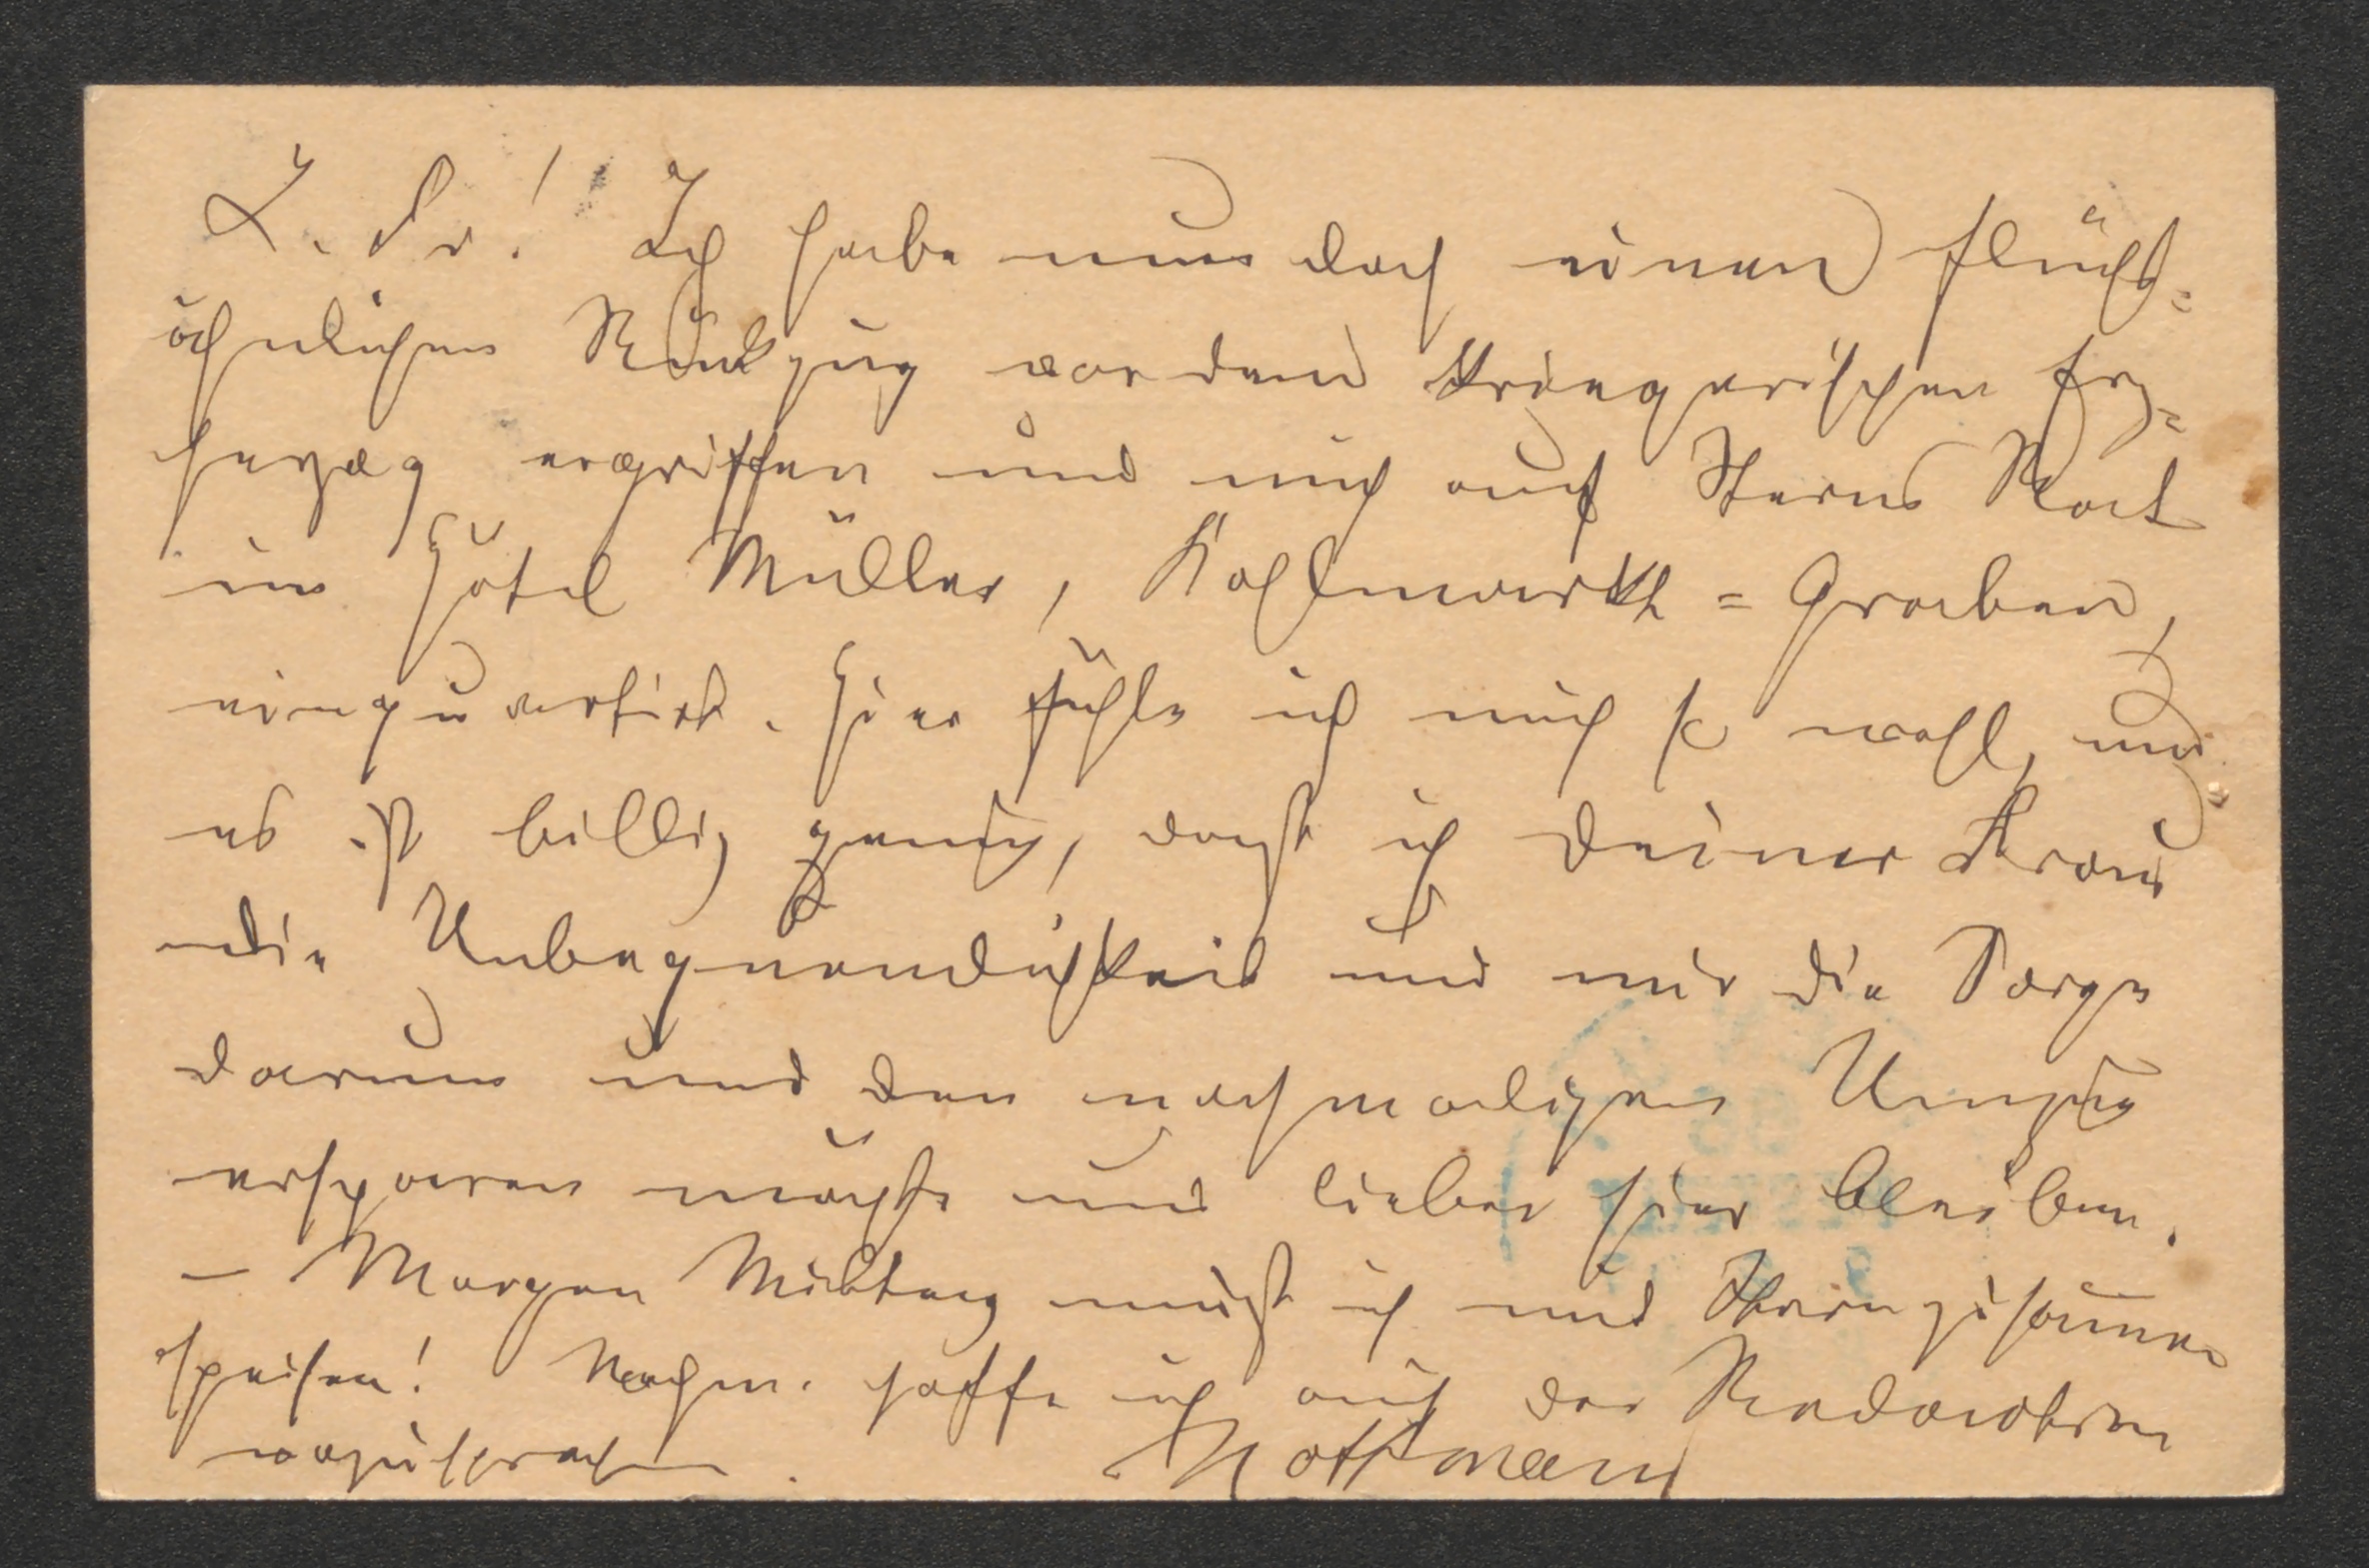 L. Fr.! Ich habe nun doch einen flucht=
ähnlichen Rückzug vor dem kriegerischen Erz=
herzog ergriffen und mich auf Sterns Rat
im Hôtel Müller, Kohlmarkt=Graben,
einquartirt. Hier fühle ich mich so wohl, und
es ist billig genug, daß ich Deiner Frau
die Unbequemlichkeit und mir die Sorge
darum und den nochmaligen Umzug
ersparen möchte und lieber hier bleiben.
– Morgen Mittag muß ich mit Stern zusammen
speisen! Nachm. hoffe ich auf der Redaction
vorzusprechen.